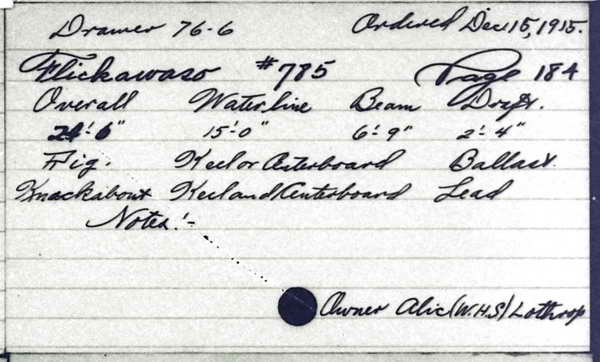 Drawer 76-6 Ordered Dec 15, 1915.
Flickawaso #785 Page 184
Overall Waterline Beam Draft.
24'-6" 15'-0" 6'-9" 2'-4"
Rig. Keel or Centerboard Ballast.
Knackabout Keel and Centerboard Lead
Notes:-
Owner Alic (W.H.S) Lothrop